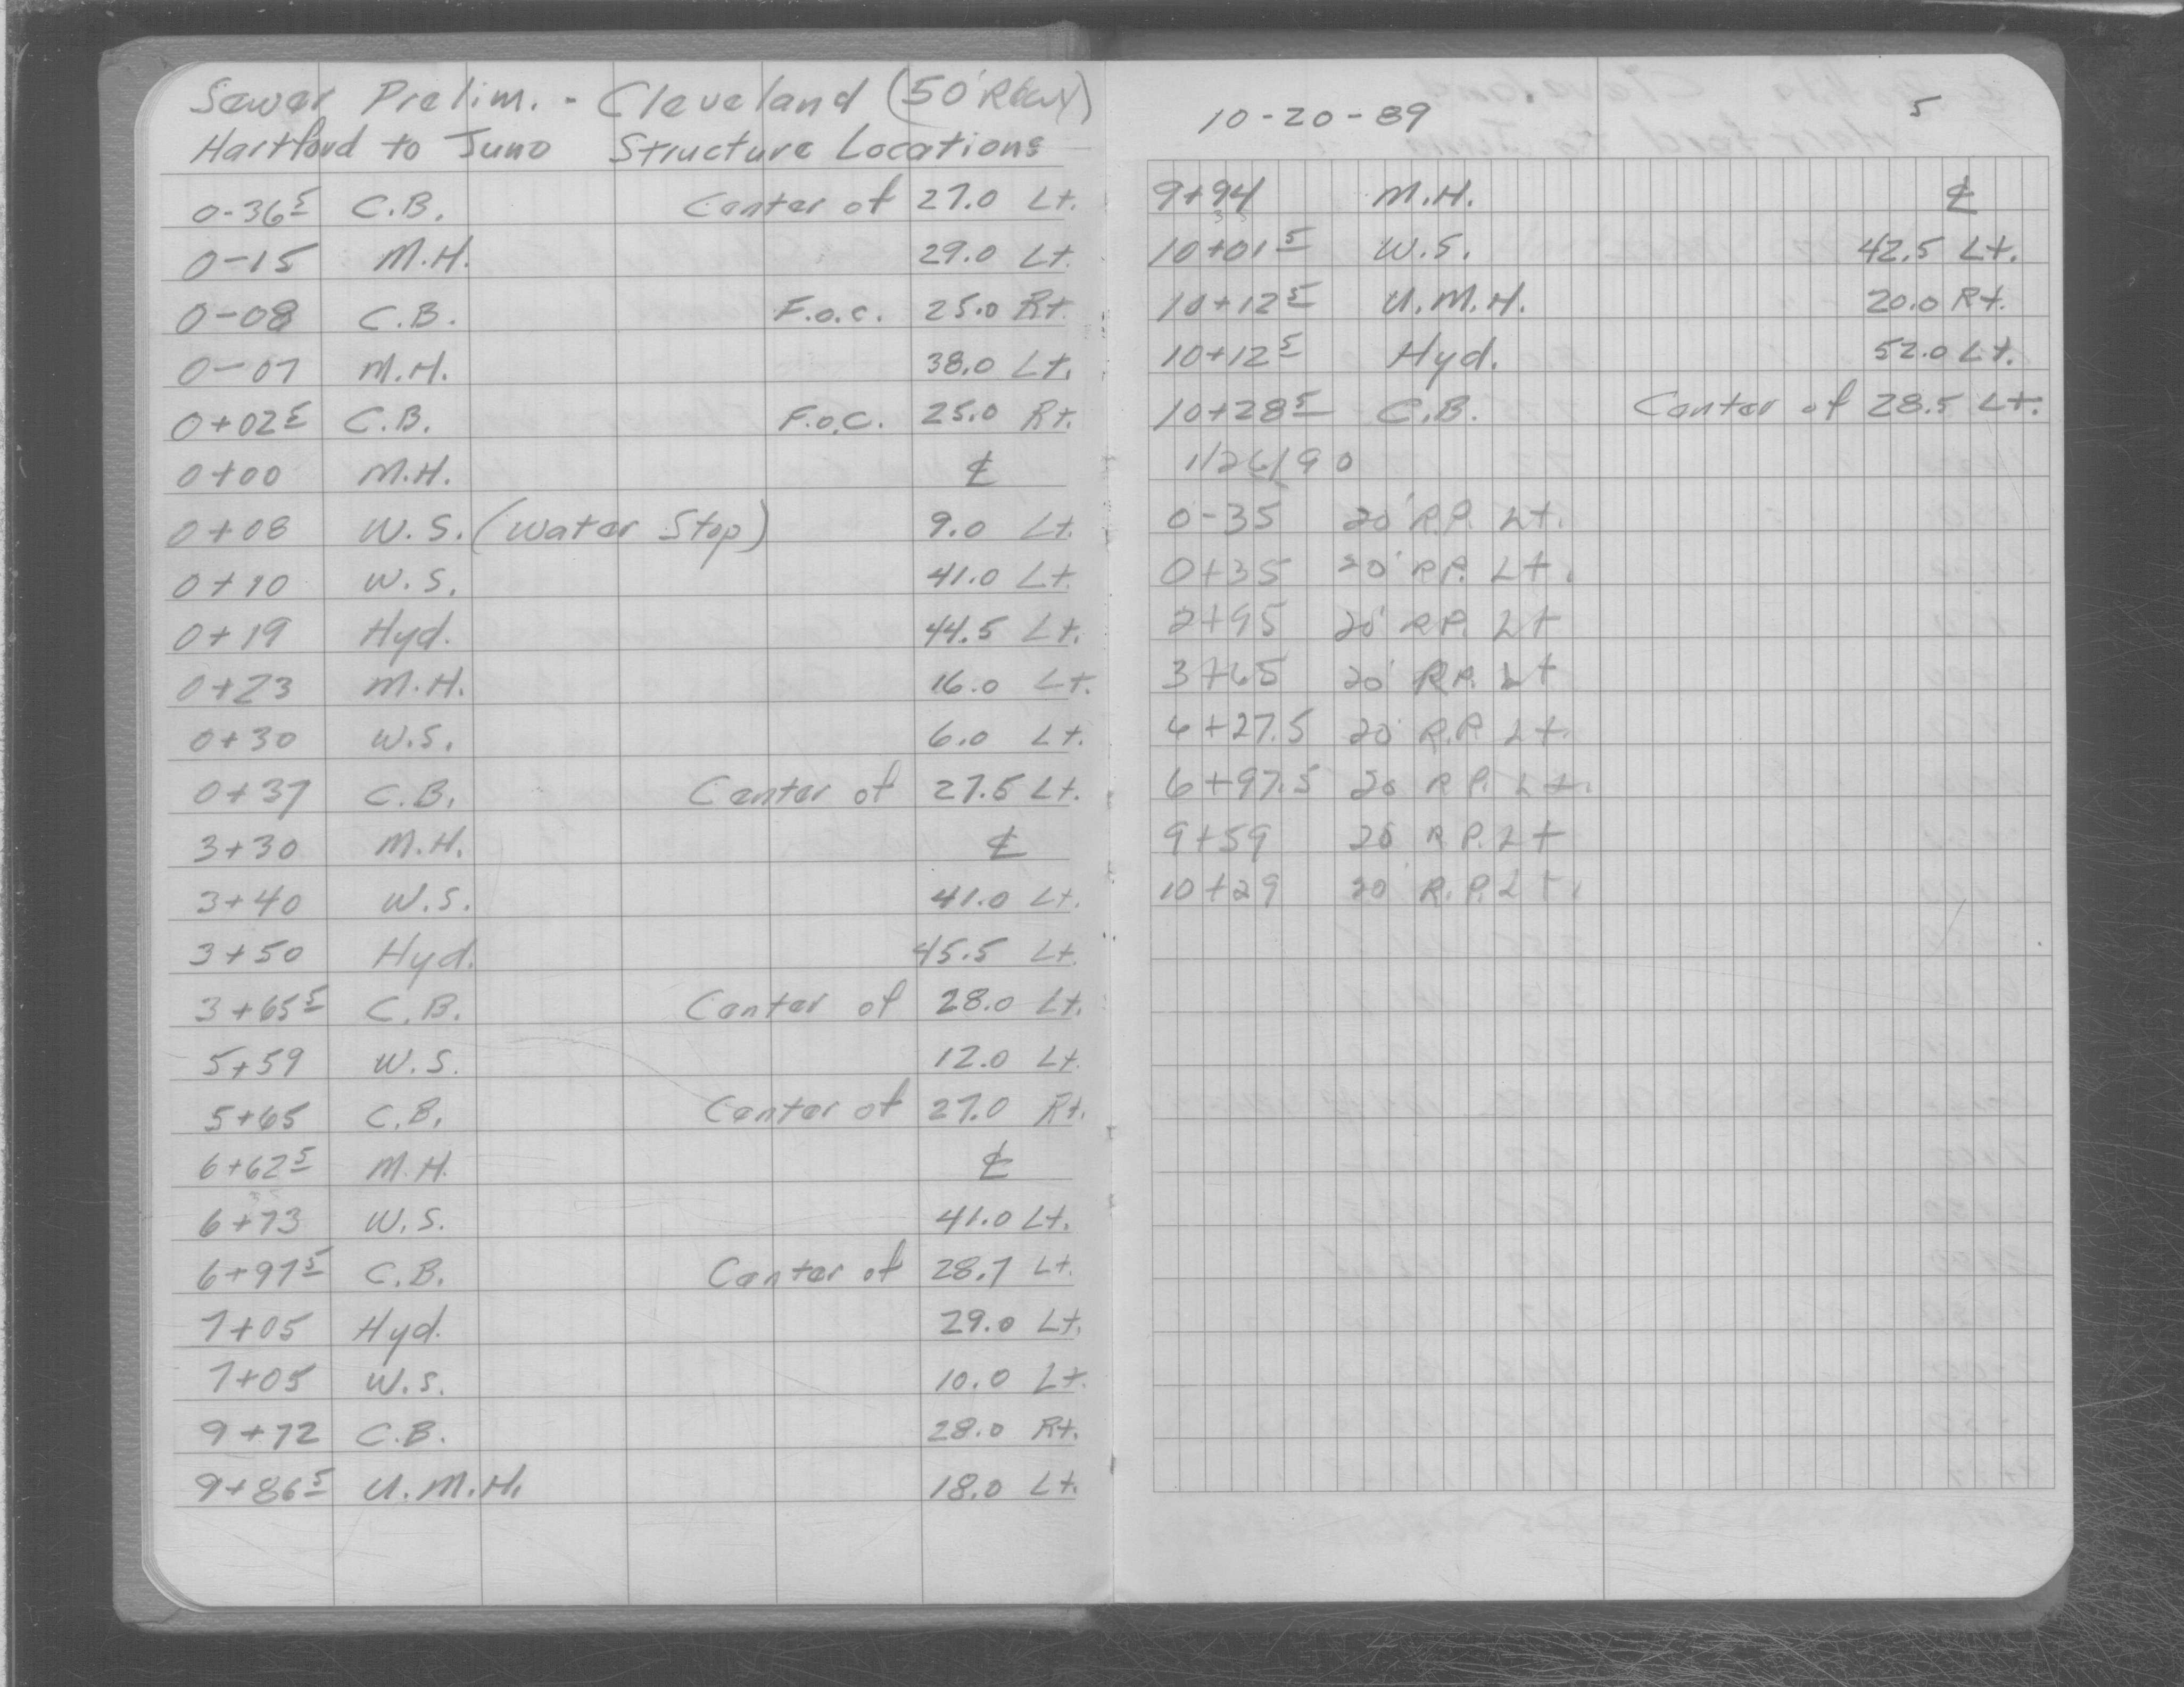 Sewer Prelim. - Cleveland (50' R/W)
Hartford to Juno Structure Locations
0-36⁵ C.B. Center of 27.0 Lt.
0-15 M.H. 29.0 Lt.
0-08 C.B. F.o.c. 25.0 Rt.
0-07 M.H. 38.0 Lt.
0+02⁵ C.B. F.o.C. 25.0 Rt.
0+00 M.H. ℄
0+08 W.S. (Water Stop) 9.0 Lt.
0+10 W.S. 41.0 Lt.
0+19 Hyd. 44.5 Lt.
0+23 M.H. 16.0 Lt.
0+30 W.S. 6.0 Lt.
0+37 C.B. Center of 27.5 Lt.
3+30 M.H. ℄
3+40 W.S. 41.0 Lt.
3+50 Hyd. 45.5 Lt.
3+65⁵ C.B. Center of 28.0 Lt.
5+59 W.S. 12.0 Lt.
5+65 C.B. Center of 27.0 Rt.
6+62⁵ M.H. ℄
6+73 W.S. 41.0 Lt.
6+97⁵ C.B. Center of 28.7 Lt.
7+05 Hyd. 29.0 Lt.
7+05 W.S. 10.0 Lt.
9+72 C.B. 28.0 Rt.
9+86⁵ U.M.H. 18.0 Lt.
10-20-89 5
9+94 M.H. ℄
10+01⁵ W.S. 42.5 Lt.
10+12⁵ U.M.H. 20.0 Rt.
10+12⁵ Hyd. 52.0 Lt.
10+28⁵ C.B. Center of 28.5 Lt.
1/26/90
0-35 20' R.P. Lt.
0+35 20' R.P. Lt.
2+95 20' R.P. Lt
3+65 20' R.P. Lt
6+27.5 20' R.P. Lt.
6+97.5 20 R.P. Lt.
9+59 20 R.P. Lt
10+29 20' R.P. Lt.